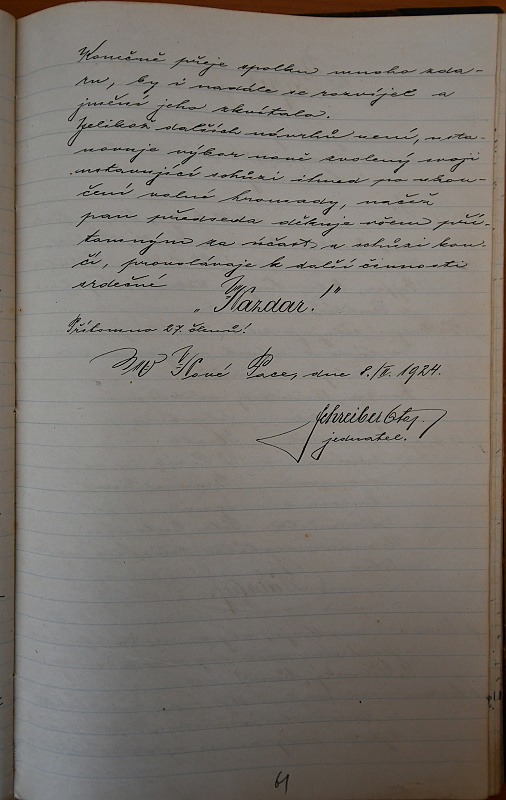 Konečně přeje spolku mnoho zda-
ru, by i nadále se rozvíjel a
jmění jeho zkvétalo.
Jelikož dalších návrhů není, usta-
novuje výbor nově zvolený svoji
ustavující schůzi ihned po skon-
čení valné hromady, načež
pan předseda děkuje všem pří-
tomným za účast a schůzi kon-
čí, provolávaje k další činnosti
srdečné
„Nazdar!"
Přítomno 27 členů!
V Nové Pace, dne 8./II. 1924.
Schreiber Otaj.
jednatel.
61